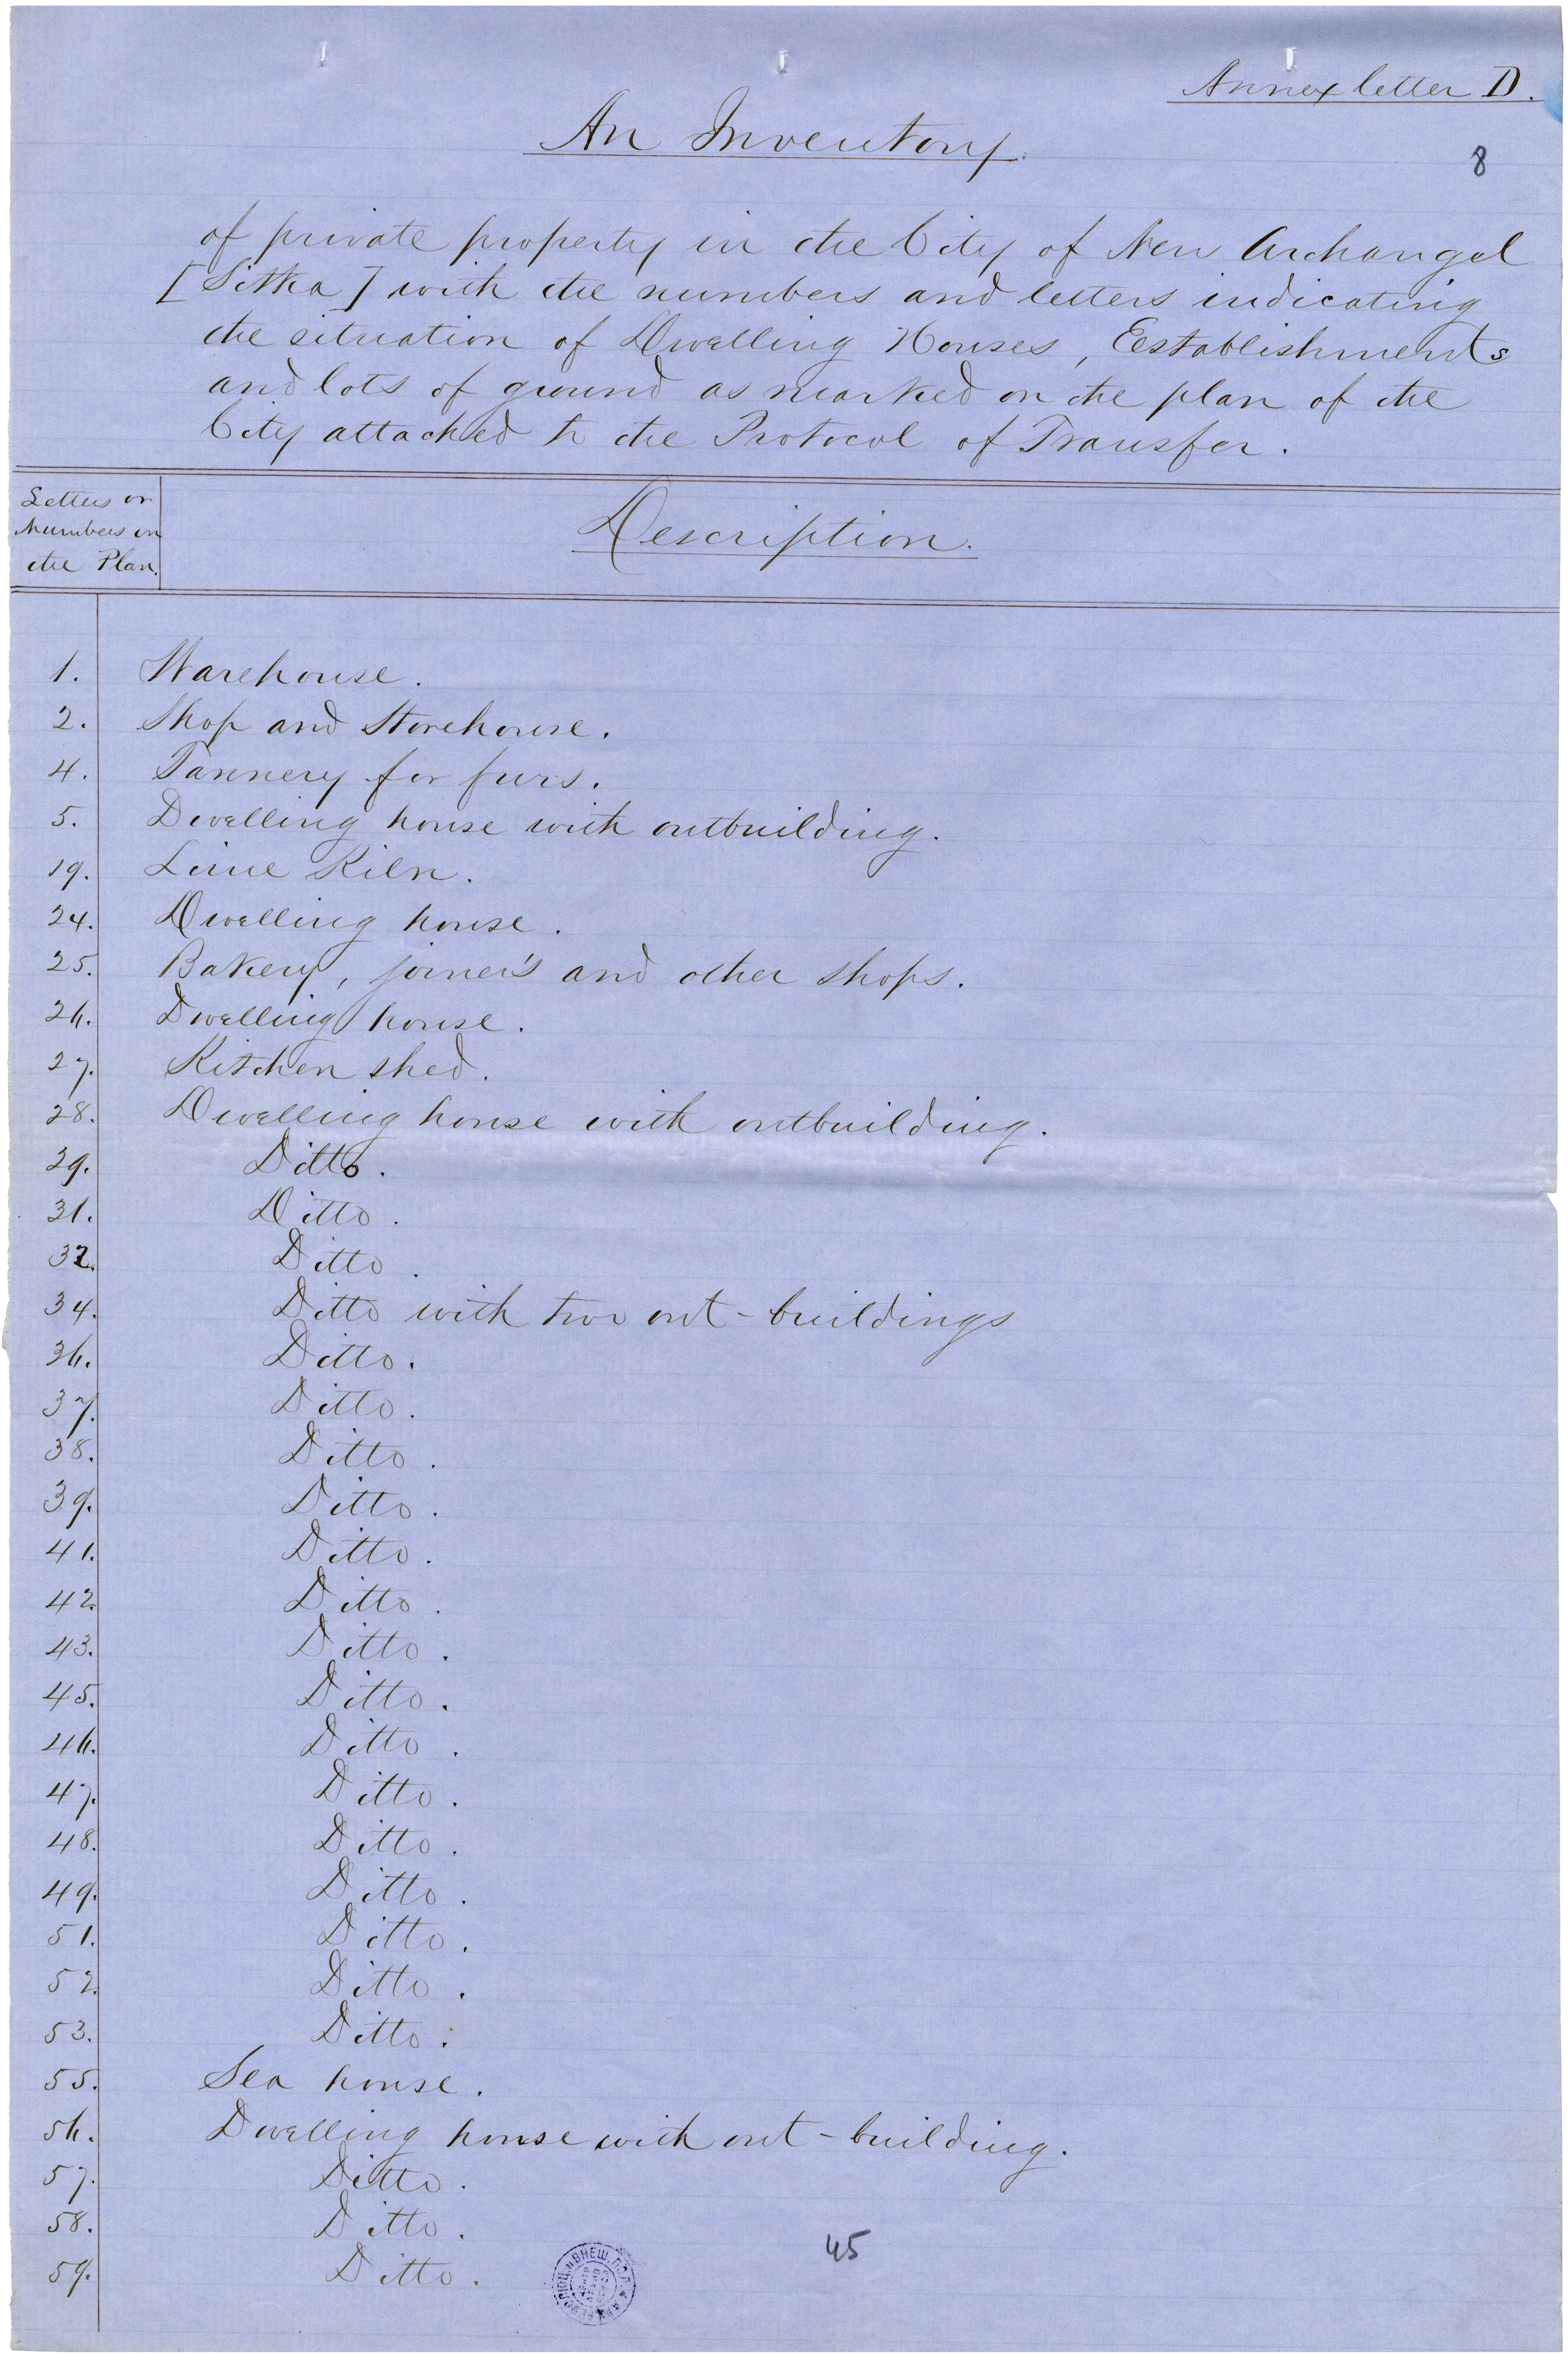 Annex letter D.
An Inventory.
8
of private property in the City of New Archangel
[Sitka] with the numbers and letters indicating
the situation of Dwelling Houses, Establishments
and lots of ground as marked on the plan of the
City attached to the Protocol of Transfer.
Letters or
Numbers on
the Plan.
Description.
1. Warehouse.
2. Shop and Storehouse.
4. Tannery for furs.
5. Dwelling house with outbuilding.
19. Lime Kiln.
24. Dwelling house.
25. Bakery, joiner's and other shops.
26. Dwelling house.
27. Kitchen shed.
28. Dwelling house with outbuilding.
29. Ditto.
31. Ditto.
32. Ditto.
34. Ditto with two out-buildings
36. Ditto.
37. Ditto.
38. Ditto.
39. Ditto.
41. Ditto.
42. Ditto.
43. Ditto.
45. Ditto.
46. Ditto.
47. Ditto.
48. Ditto.
49. Ditto.
51. Ditto.
52. Ditto.
53. Ditto.
55. Sea house.
56. Dwelling house with out-building.
57. Ditto.
58. Ditto.
59. Ditto.
45